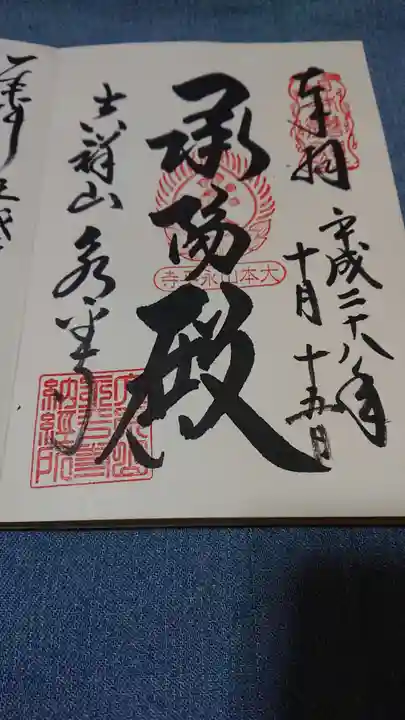 奉拝
平成二十八年
十月十五日
承陽殿
大本山永平寺
吉祥山永平寺
納経所